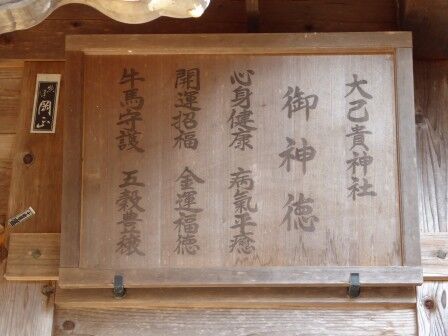 大己貴神社
御神徳
心身健康 病氣平癒
開運招福 金運福徳
牛馬守護 五穀豊穣